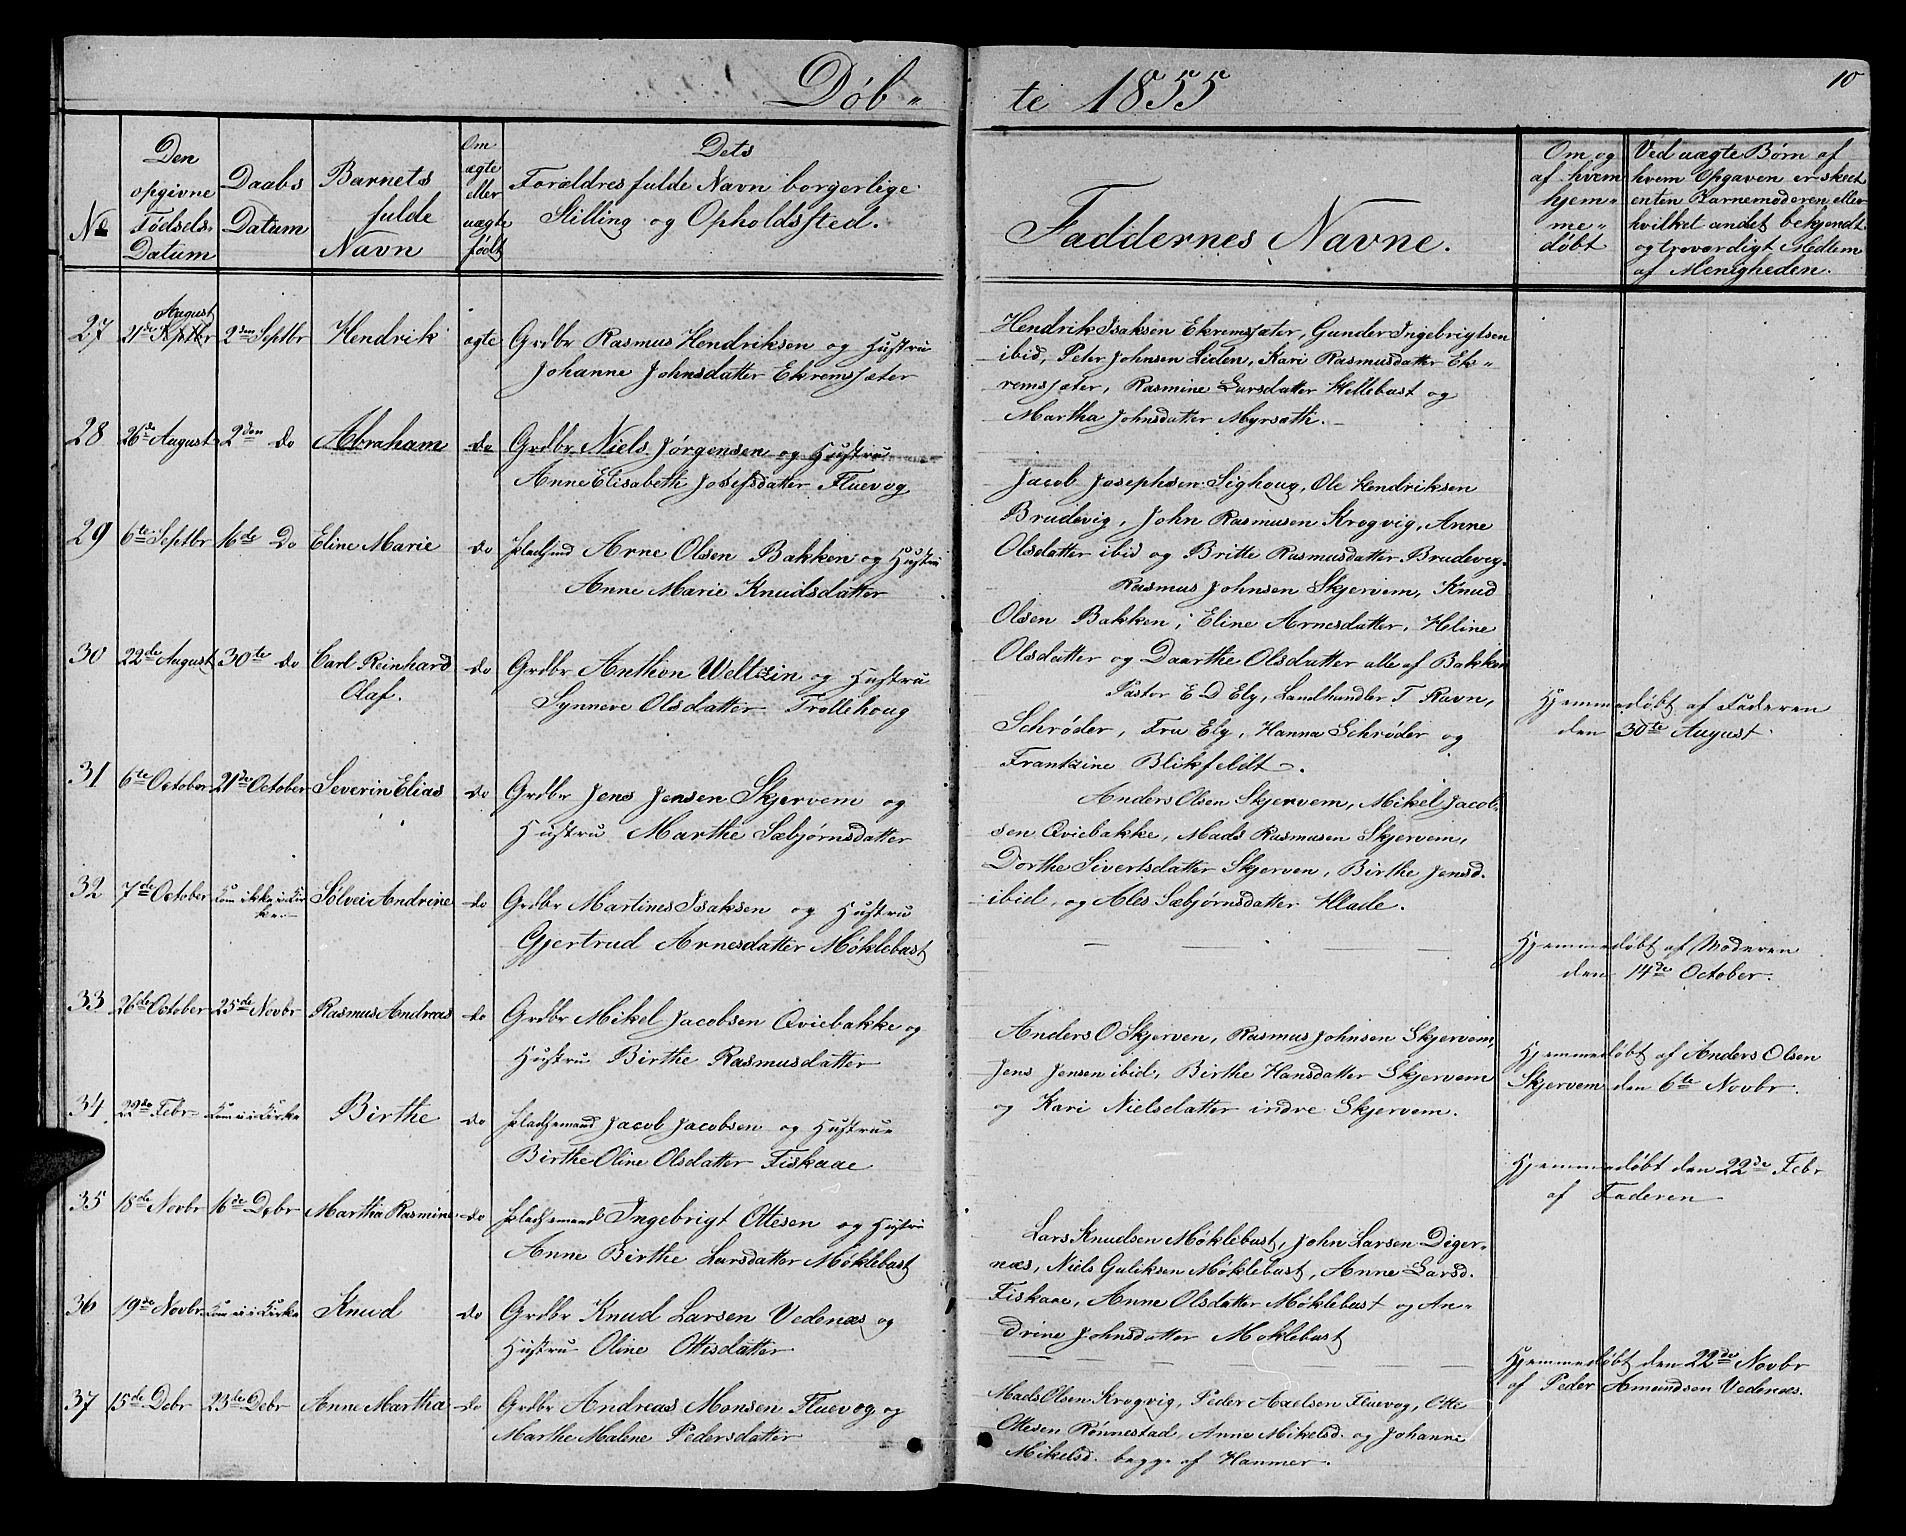 Døb-
te 1855
10
No
Den
opgivne
Fødsels-
Datum
Daabs
Datum
Barnets
fulde
Navn
Om
ægte
eller
uægte
født
Dets
Forældres fulde Navn borgerlige
Stilling og Opholdssted.
Faddernes Navne.
Om og
af hvem
hjem-
me-
døbt
Ved uægte Børn af
hvem Opgaven er skeet
enten Barnemoderen eller
hvilket andet bekjendt
og troværdigt Medlem
af Menigheden.
27 21de August Septbr 2den Septbr Hendrik ægte Grdbr Rasmus Hendriksen og Hustru
Johanne Johnsdatter Ekremsæter
Hendrik Isaksen Ekremsæter, Gunder Ingebrigtsen
ibid, Peter Johnsen Liden, Kari Rasmusdatter Ek-
remsæter, Rasmine Larsdatter Hellebust og
Martha Johnsdatter Myrsæth.
28 26de August 2den do Abraham do Grdbr Niels Jørgensen og Hustru
Anne Elisabeth Josefsdatter Fluevog
Jacob Josephsen Sighoug, Ole Hendriksen
Brudevig, John Rasmusen Krogvig, Anne
Olsdatter ibid og Britte Rasmusdatter Brudevig.
29 6te Septbr 16de Do Eline Marie do Pladsmd Arne Olsen Bakken og Hustru
Anne Marie Knudsdatter
Rasmus Johnsen Skjervem, Knud
Olsen Bakken, Eline Arnesdatter, Heline
Olsdatter og Daarthe Olsdatter alle af Bakken
30 22de August 30te do Carl Reinhard
Olaf.
do Grdbr Anthon Weltzin og Hustru
Synneve Olsdatter Trollehoug
Pastor E D Ely, Landhandler T Ravn,
Schrøder, Fru Ely, Hanna Schrøder og
Frantzine Blikfeldt.
Hjemmedøbt af Faderen
den 30te August
31 6te October 21de October Severin Elias do Grdbr Jens Jensen Skjervem og
Hustru Marthe Sæbjørnsdatter
Anders Olsen Skjervem, Mikel Jacob-
sen Qviebakke, Mads Rasmusen Skjervem,
Dorthe Sivertsdatter Skjerven, Birthe Jensd.
ibid, og Ales Sæbjørnsdatter Hlade.
32 7de October Kom ikke i Kir-
ken
Sølvei Andrine do Grdbr Martines Isaksen og Hustru
Gjertrud Arnesdatter Møklebust
Hjemmedøbt af Moderen
den 14de October.
33 26de October 25de Novbr Rasmus Andreas do Grdbr Mikel Jacobsen Qviebakke og
Hustru Birthe Rasmusdatter
Anders O Skjerven, Rasmus Johnsen Skjervem,
Jens Jensen ibid, Birthe Hansdatter Skjervem
og Kari Nielsdatter indre Skjervem.
Hjemmedøbt af Anders Olsen
Skjervem den 6te Novbr.
34 22de Febr Kom ei i Kirke Birthe do Pladsemand Jacob Jacobsen og Hustrue
Birthe Oline Olsdatter Fiskaae
Hjemmedøbt den 22de Febr
af Faderen
35 18de Novbr 16de Debr Martha Rasmine do Pladsemand Ingebrigt Ottesen og Hustru
Anne Birthe Larsdatter Møklebust
Lars Knudsen Møklebust, John Larsen Diger-
næs, Niels Guliksen Møklebust, Anne Larsd.
Fiskaae, Anne Olsdatter Møklebust og An-
drine Johnsdatter Møklebust
36 19de Novbr Kom ei i Kirke Knud do Grdbr Knud Larsen Vedenæs og
Hustru Oline Ottesdatter
Hjemmedøbt den 22de Novbr
af Peder Amundsen Vedenæs.
37 15de Debr 23de Debr Anne Martha do Grdbr Andreas Monsen Fluevog og
Marthe Malene Pedersdatter
Mads Olsen Krogvig, Peder Axelsen Fluevog, Otte
Ottesen Rønnestad, Anne Mikelsd. og Johanne
Mikelsd. begge af Hammer.